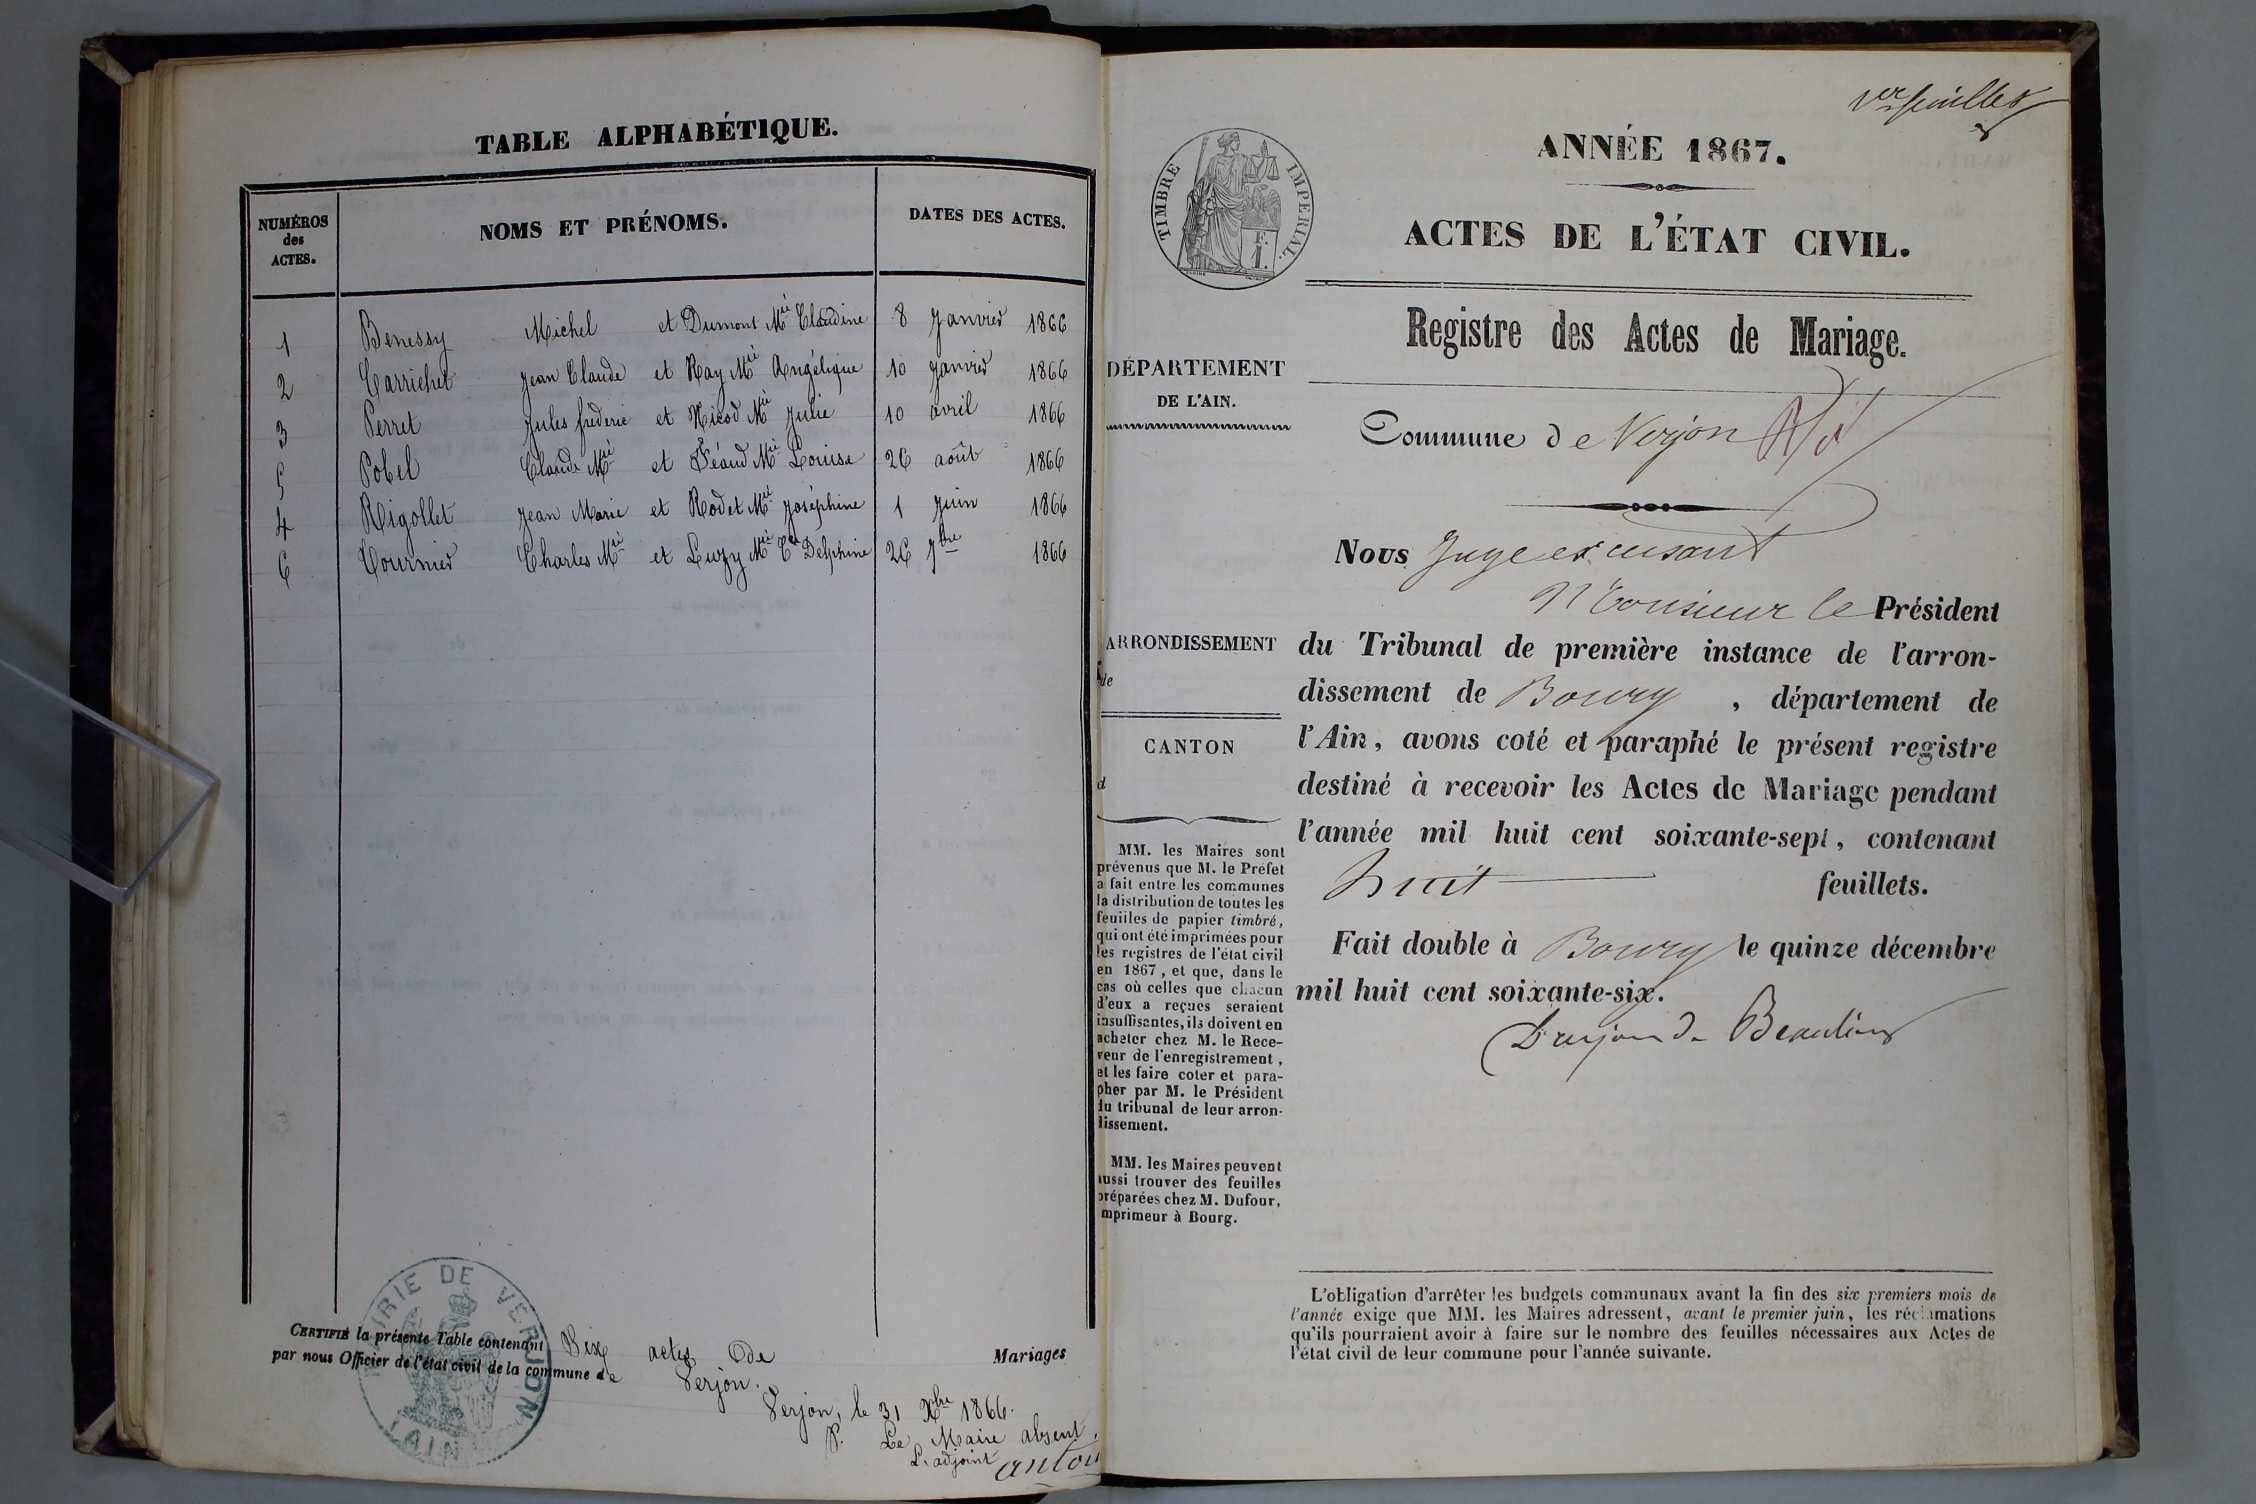 TABLE ALPHABÉTIQUE.
NUMÉROS des ACTES. NOMS ET PRÉNOMS. DATES DES ACTES.
1 Benessy Michel et Dumont Mie Claudine 8 Janvier 1866
2 Carrichet Jean Claude et Ray Mie Angélique 10 Janvier 1866
3 Perret Jules fréderic et Nicod Mie Julie 10 avril 1866
5 Pobel Claude Mie et Féaud Mie Louise 26 août 1866
4 Rigollet Jean Marie et Rodet Mie Joséphine 1 Juin 1866
6 Tournier Charles Mie et Luzy Mie Delphine 26 7bre 1866
CERTIFIÉ la présente Table contenant Six actes de Mariages
par nous Officier de l'état civil de la commune de Verjon.
Verjon, le 31 Xbre 1866.
P. Le Maire absent,
L'adjoint
MAIRIE DE VERJON
L'AIN
1er feuillet
ANNÉE 1867.
TIMBRE IMPERIAL.
F. 1.
ACTES DE L'ÉTAT CIVIL.
Registre des Actes de Mariage.
DÉPARTEMENT
DE L'AIN.
Commune de Verjon
Nous Juge excusant
Monsieur le Président
ARRONDISSEMENT
de
CANTON
d
du Tribunal de première instance de l'arron-
dissement de Bourg, département de
l'Ain, avons coté et paraphé le présent registre
destiné à recevoir les Actes de Mariage pendant
l'année mil huit cent soixante-sept, contenant
huit feuillets.
Fait double à Bourg le quinze décembre
mil huit cent soixante-six.
MM. les Maires sont
prévenus que M. le Préfet
a fait entre les communes
la distribution de toutes les
feuilles de papier timbré,
qui ont été imprimées pour
les registres de l'état civil
en 1867, et que, dans le
cas où celles que chacun
d'eux a reçues seraient
insuffisantes, ils doivent en
acheter chez M. le Rece-
veur de l'enregistrement,
et les faire coter et para-
pher par M. le Président
du tribunal de leur arron-
dissement.
MM. les Maires peuvent
aussi trouver des feuilles
préparées chez M. Dufour,
imprimeur à Bourg.
L'obligation d'arrêter les budgets communaux avant la fin des six premiers mois de
l'année exige que MM. les Maires adressent, avant le premier juin, les réclamations
qu'ils pourraient avoir à faire sur le nombre des feuilles nécessaires aux Actes de
l'état civil de leur commune pour l'année suivante.